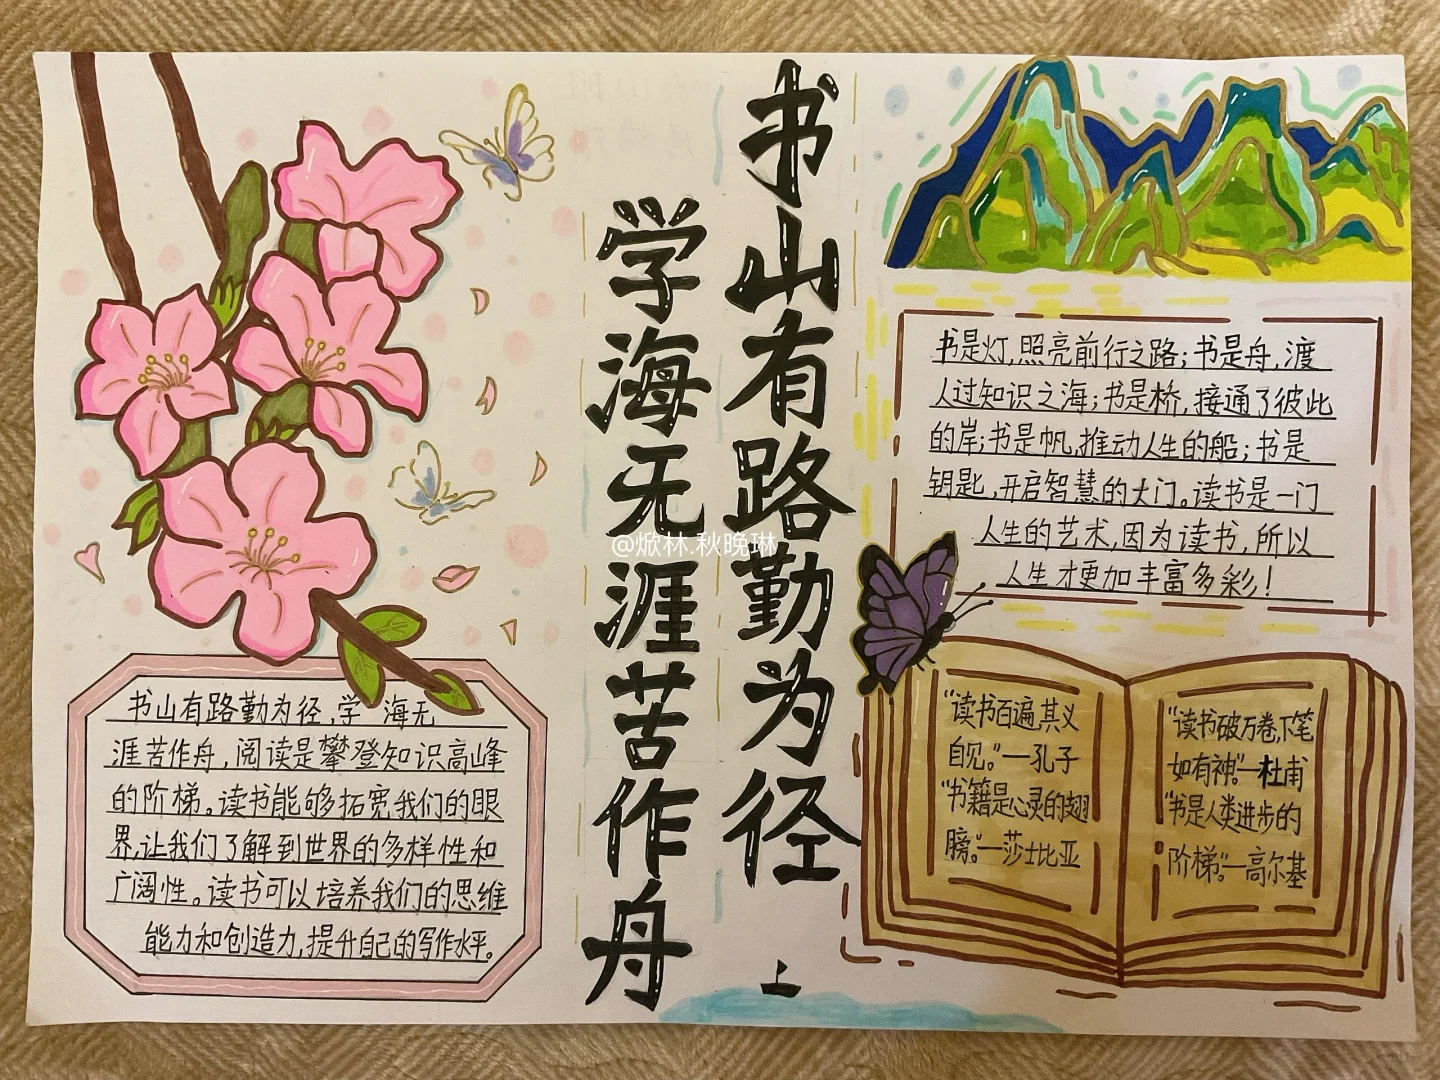 书山有路勤为径
学海无涯苦作舟
@焮林.秋晚琳
书是灯,照亮前行之路;书是舟,渡
人过知识之海;书是桥,接通了彼此
的岸;书是帆,推动人生的船;书是
钥匙,开启智慧的大门。读书是一门
人生的艺术,因为读书,所以
人生才更加丰富多彩!
书山有路勤为径,学 海无
涯苦作舟,阅读是攀登知识高峰
的阶梯。读书能够拓宽我们的眼
界,让我们了解到世界的多样性和
广阔性。读书可以培养我们的思维
能力和创造力,提升自己的写作水平。
“读书百遍,其义
自见。”—孔子
“书籍是心灵的翅
膀。”—莎士比亚
“读书破万卷,下笔
如有神。”—杜甫
“书是人类进步的
阶梯。”—高尔基